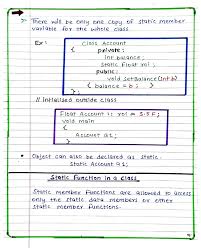 There will be only one copy of static member
variable for the whole class
Ex:
class Account
{ private:
int balance;
static float roi;
public:
void setBalance (int b)
{ balance = b; }
};
// Intialised outside class
float Account :: roi = 3.5F;
void main
{
Account a1;
}
Object can also be declared as static.
static Account a1;
Static Function in a class
Static member Functions are allowed to access
only the static data members or other
static member Functions.